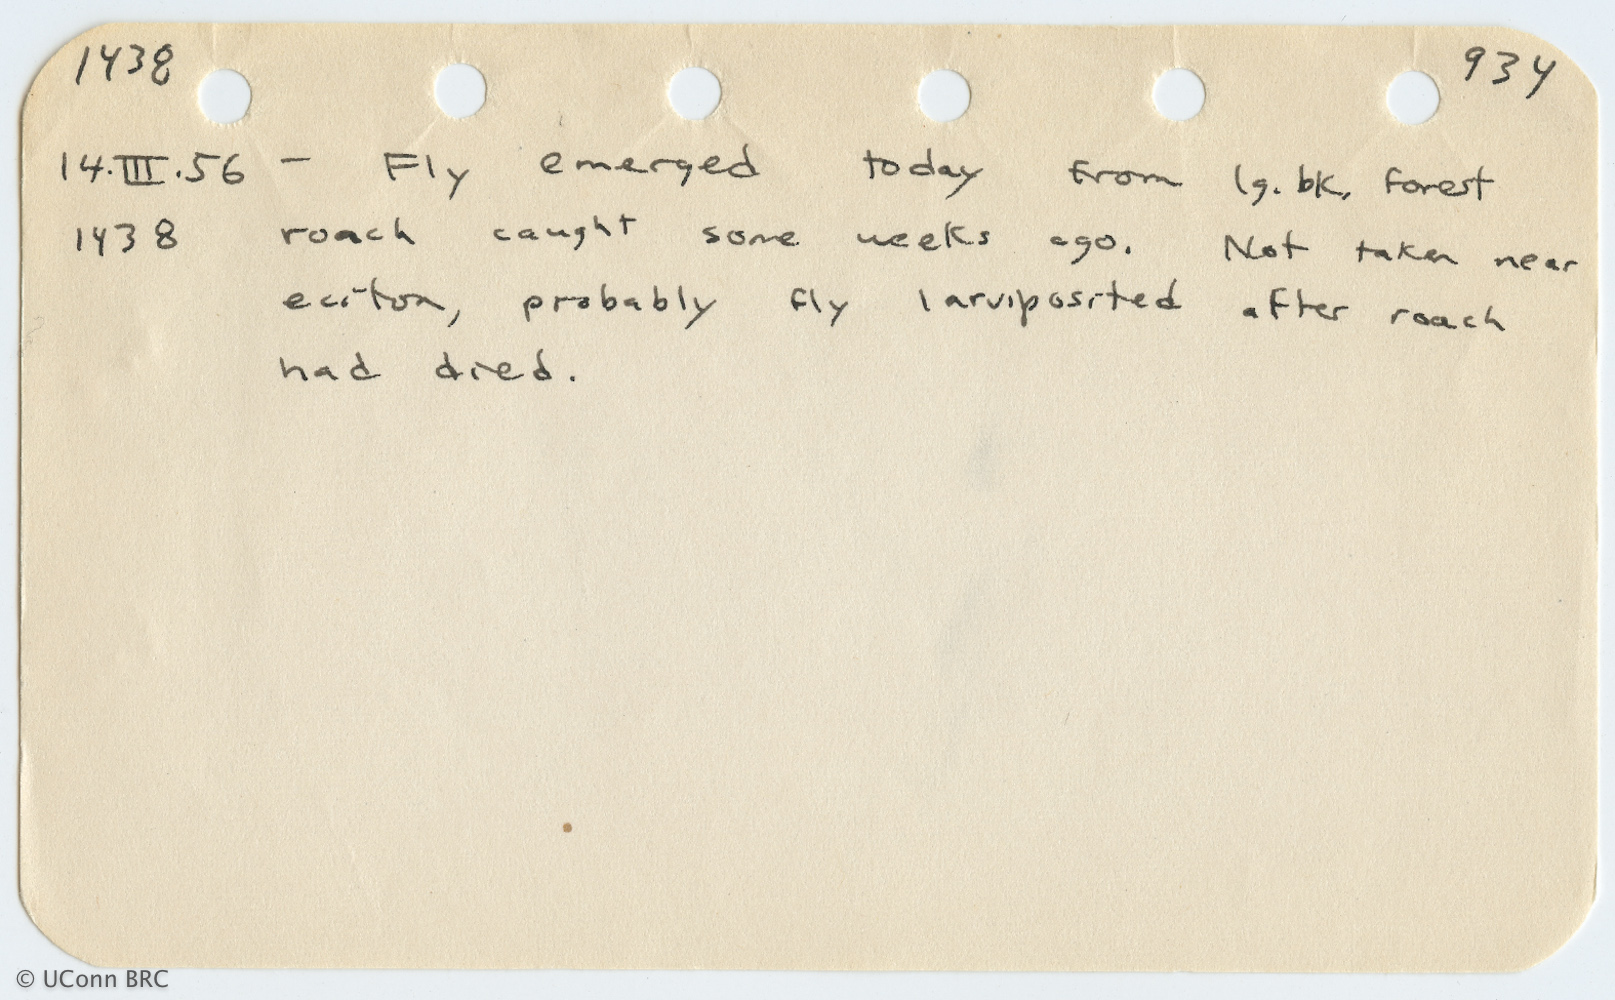 1438 934
14.III.56 - Fly emerged today from lg. bk. forest
1438 roach caught some weeks ago. Not taken near
eciton, probably fly larviposited after roach
had died.
© UConn BRC